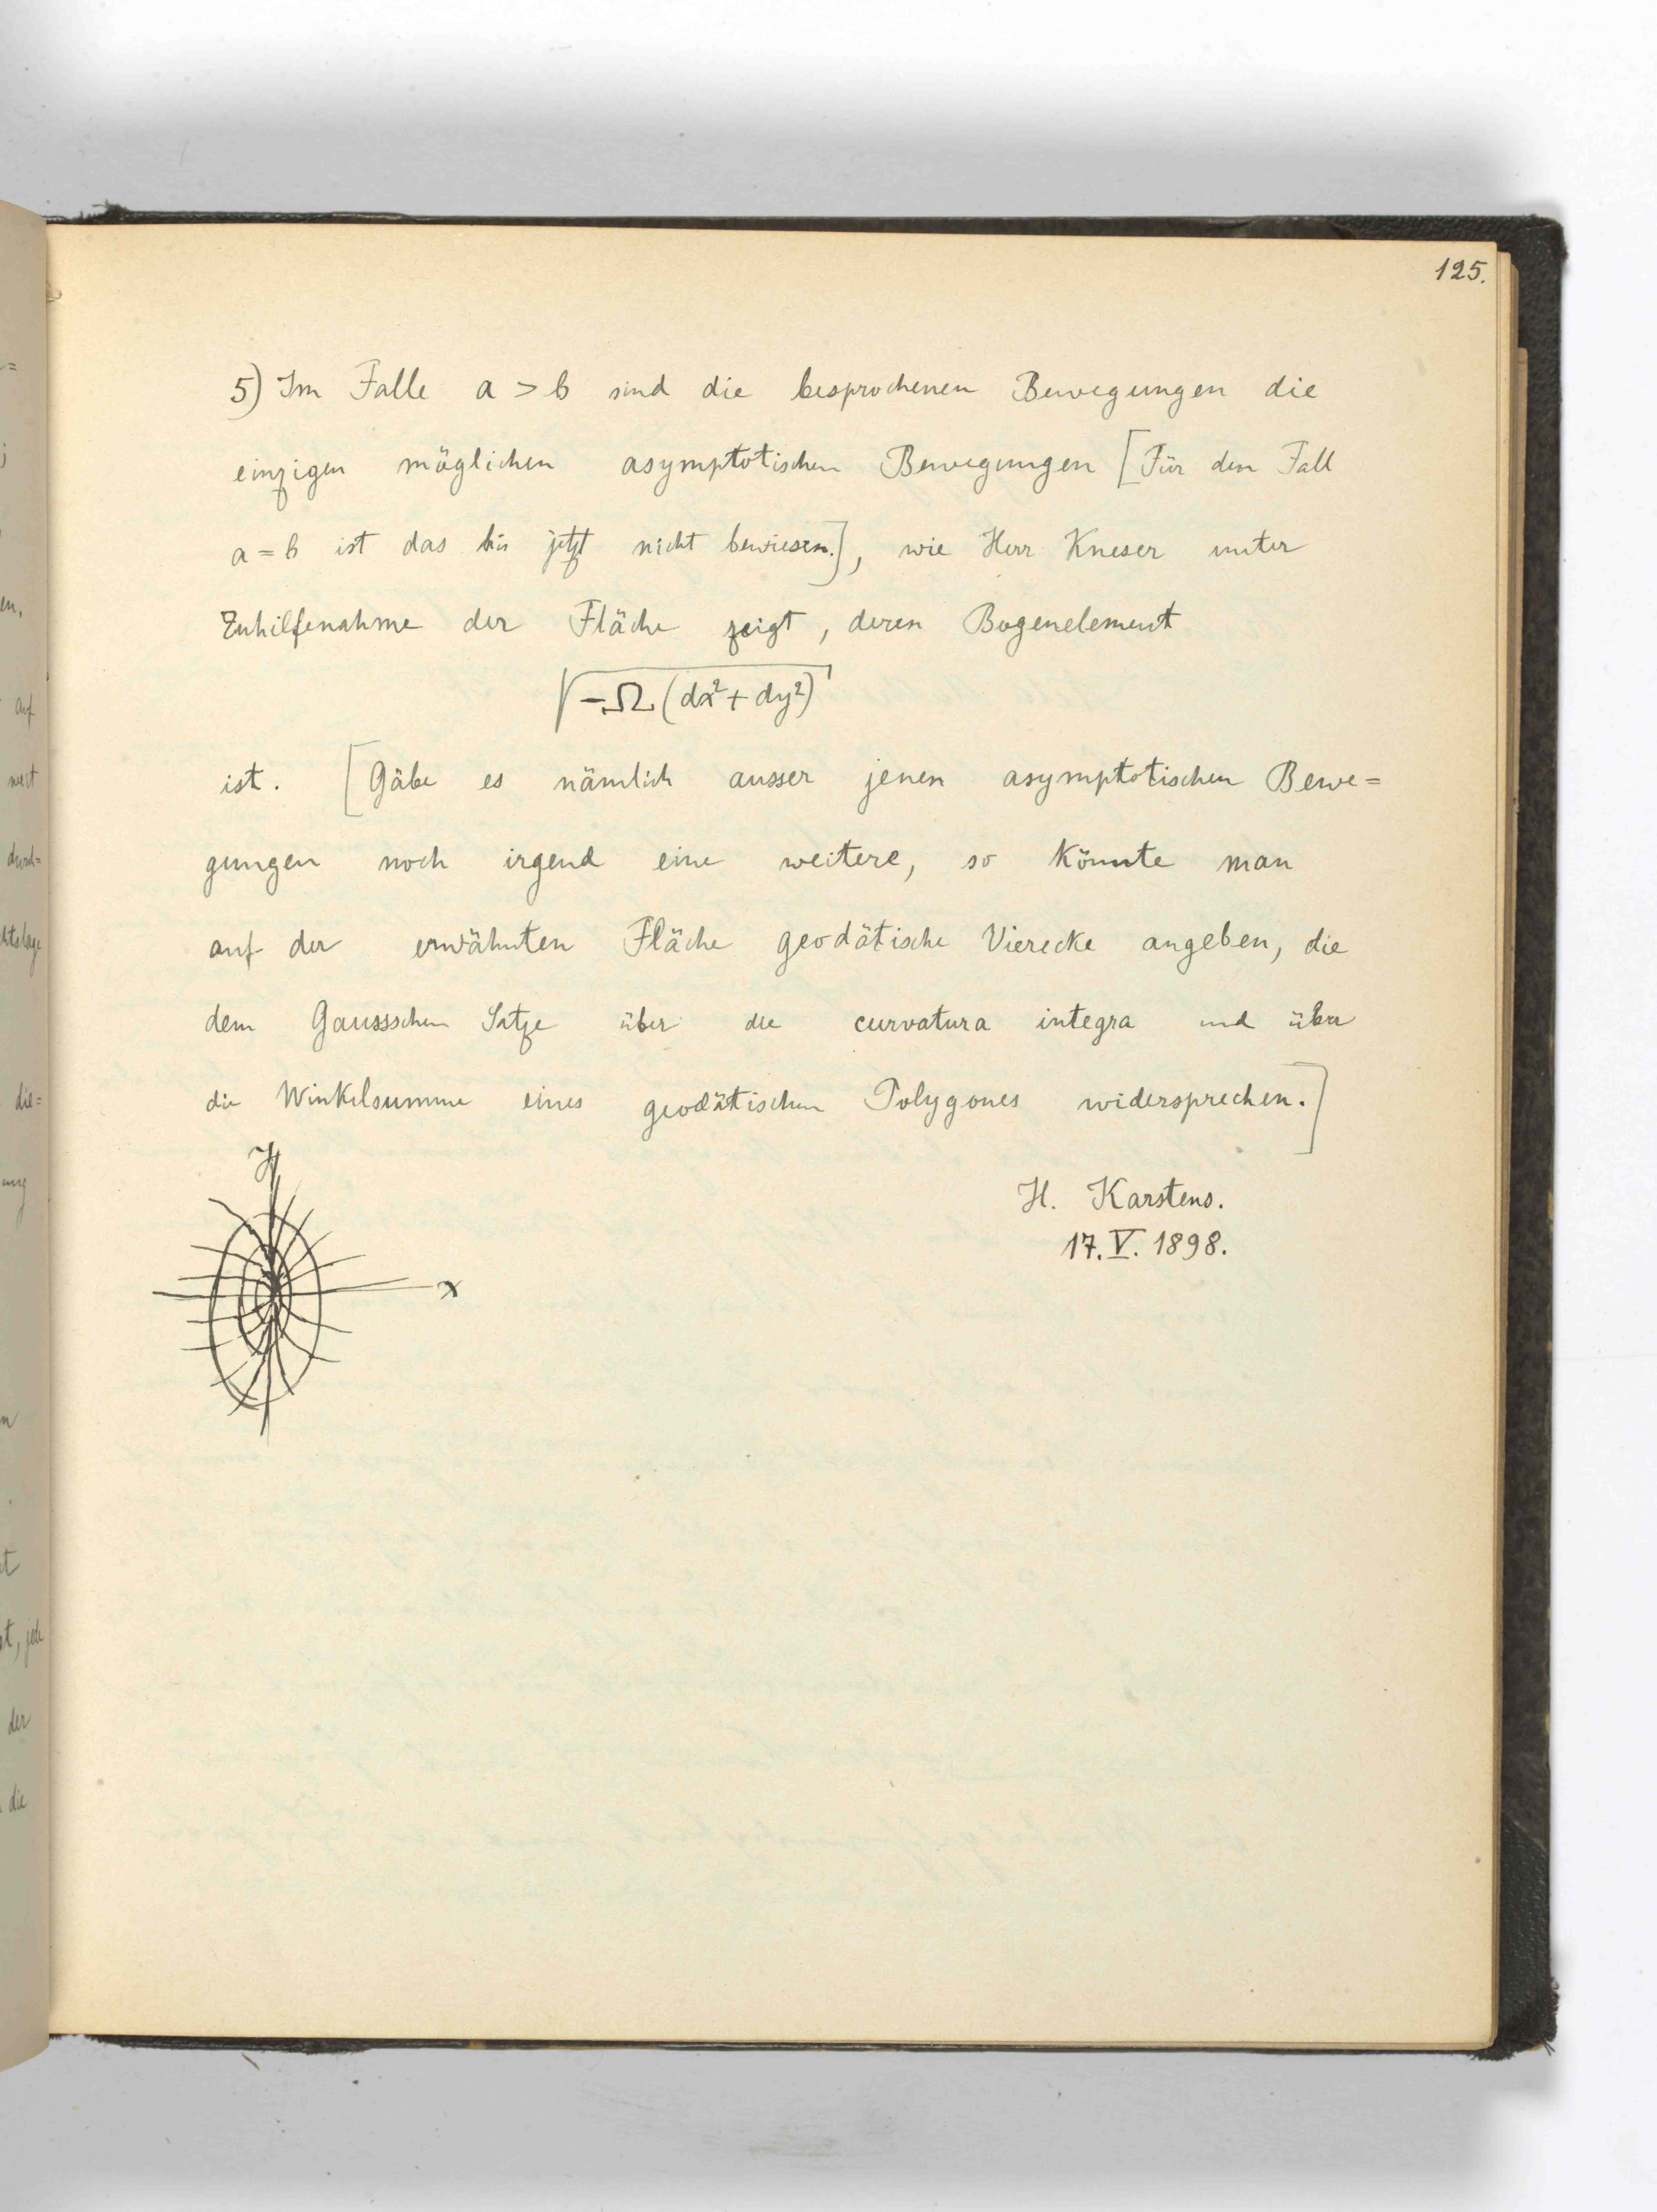 125.
5) Im Falle a > b sind die besprochenen Bewegungen die
einzigen möglichen asymptotischen Bewegungen [Für den Fall
a = b ist das bis jetzt nicht bewiesen.], wie Herr Kneser unter
Zuhilfenahme der Fläche zeigt, deren Bogenelement
√−Ω(dx²+dy²)
ist. [Gäbe es nämlich ausser jenen asymptotischen Bewe=
gungen noch irgend eine weitere, so könnte man
auf der erwähnten Fläche geodätische Vierecke angeben, die
dem Gaussschen Satze über die curvatura integra und über
die Winkelsumme eines geodätischen Polygones widersprechen.]
y
H. Karstens.
17. V. 1898.
x
auf
die=
der
die